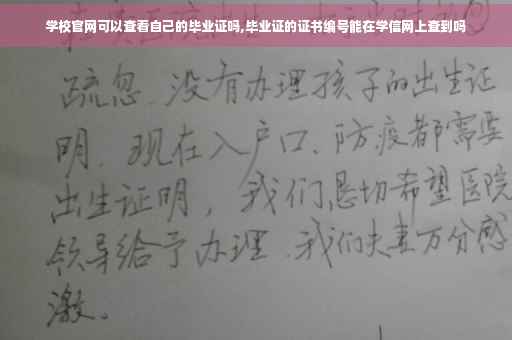 学校官网可以查看自己的毕业证吗,毕业证的证书编号能在学信网上查到吗
疏忽、没有办理孩子的出生证
明、现在入户口、防疫都需要
出生证明，我们恳切希望医院
领导给予办理、我们夫妻万分感
激。